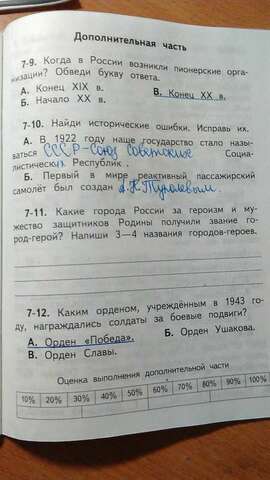 Дополнительная часть
7-9. Когда в России возникли пионерские орга-
низации? Обведи букву ответа.
А. Конец XIX в. В. Конец XX в.
Б. Начало XX в.
7-10. Найди исторические ошибки. Исправь их.
А. В 1922 году наше государство стало назы-
ваться СССР-Союз Советских Социа-
листических Республик.
Б. Первый в мире реактивный пассажирский
самолёт был создан А.Н Туполевым.
7-11. Какие города России за героизм и му-
жество защитников Родины получили звание го-
род-герой? Напиши 3—4 названия городов-героев.
7-12. Каким орденом, учреждённым в 1943 го-
ду, награждались солдаты за боевые подвиги?
А. Орден «Победа». Б. Орден Ушакова.
В. Орден Славы.
Оценка выполнения дополнительной части
10% 20% 30% 40% 50% 60% 70% 80% 90% 100%